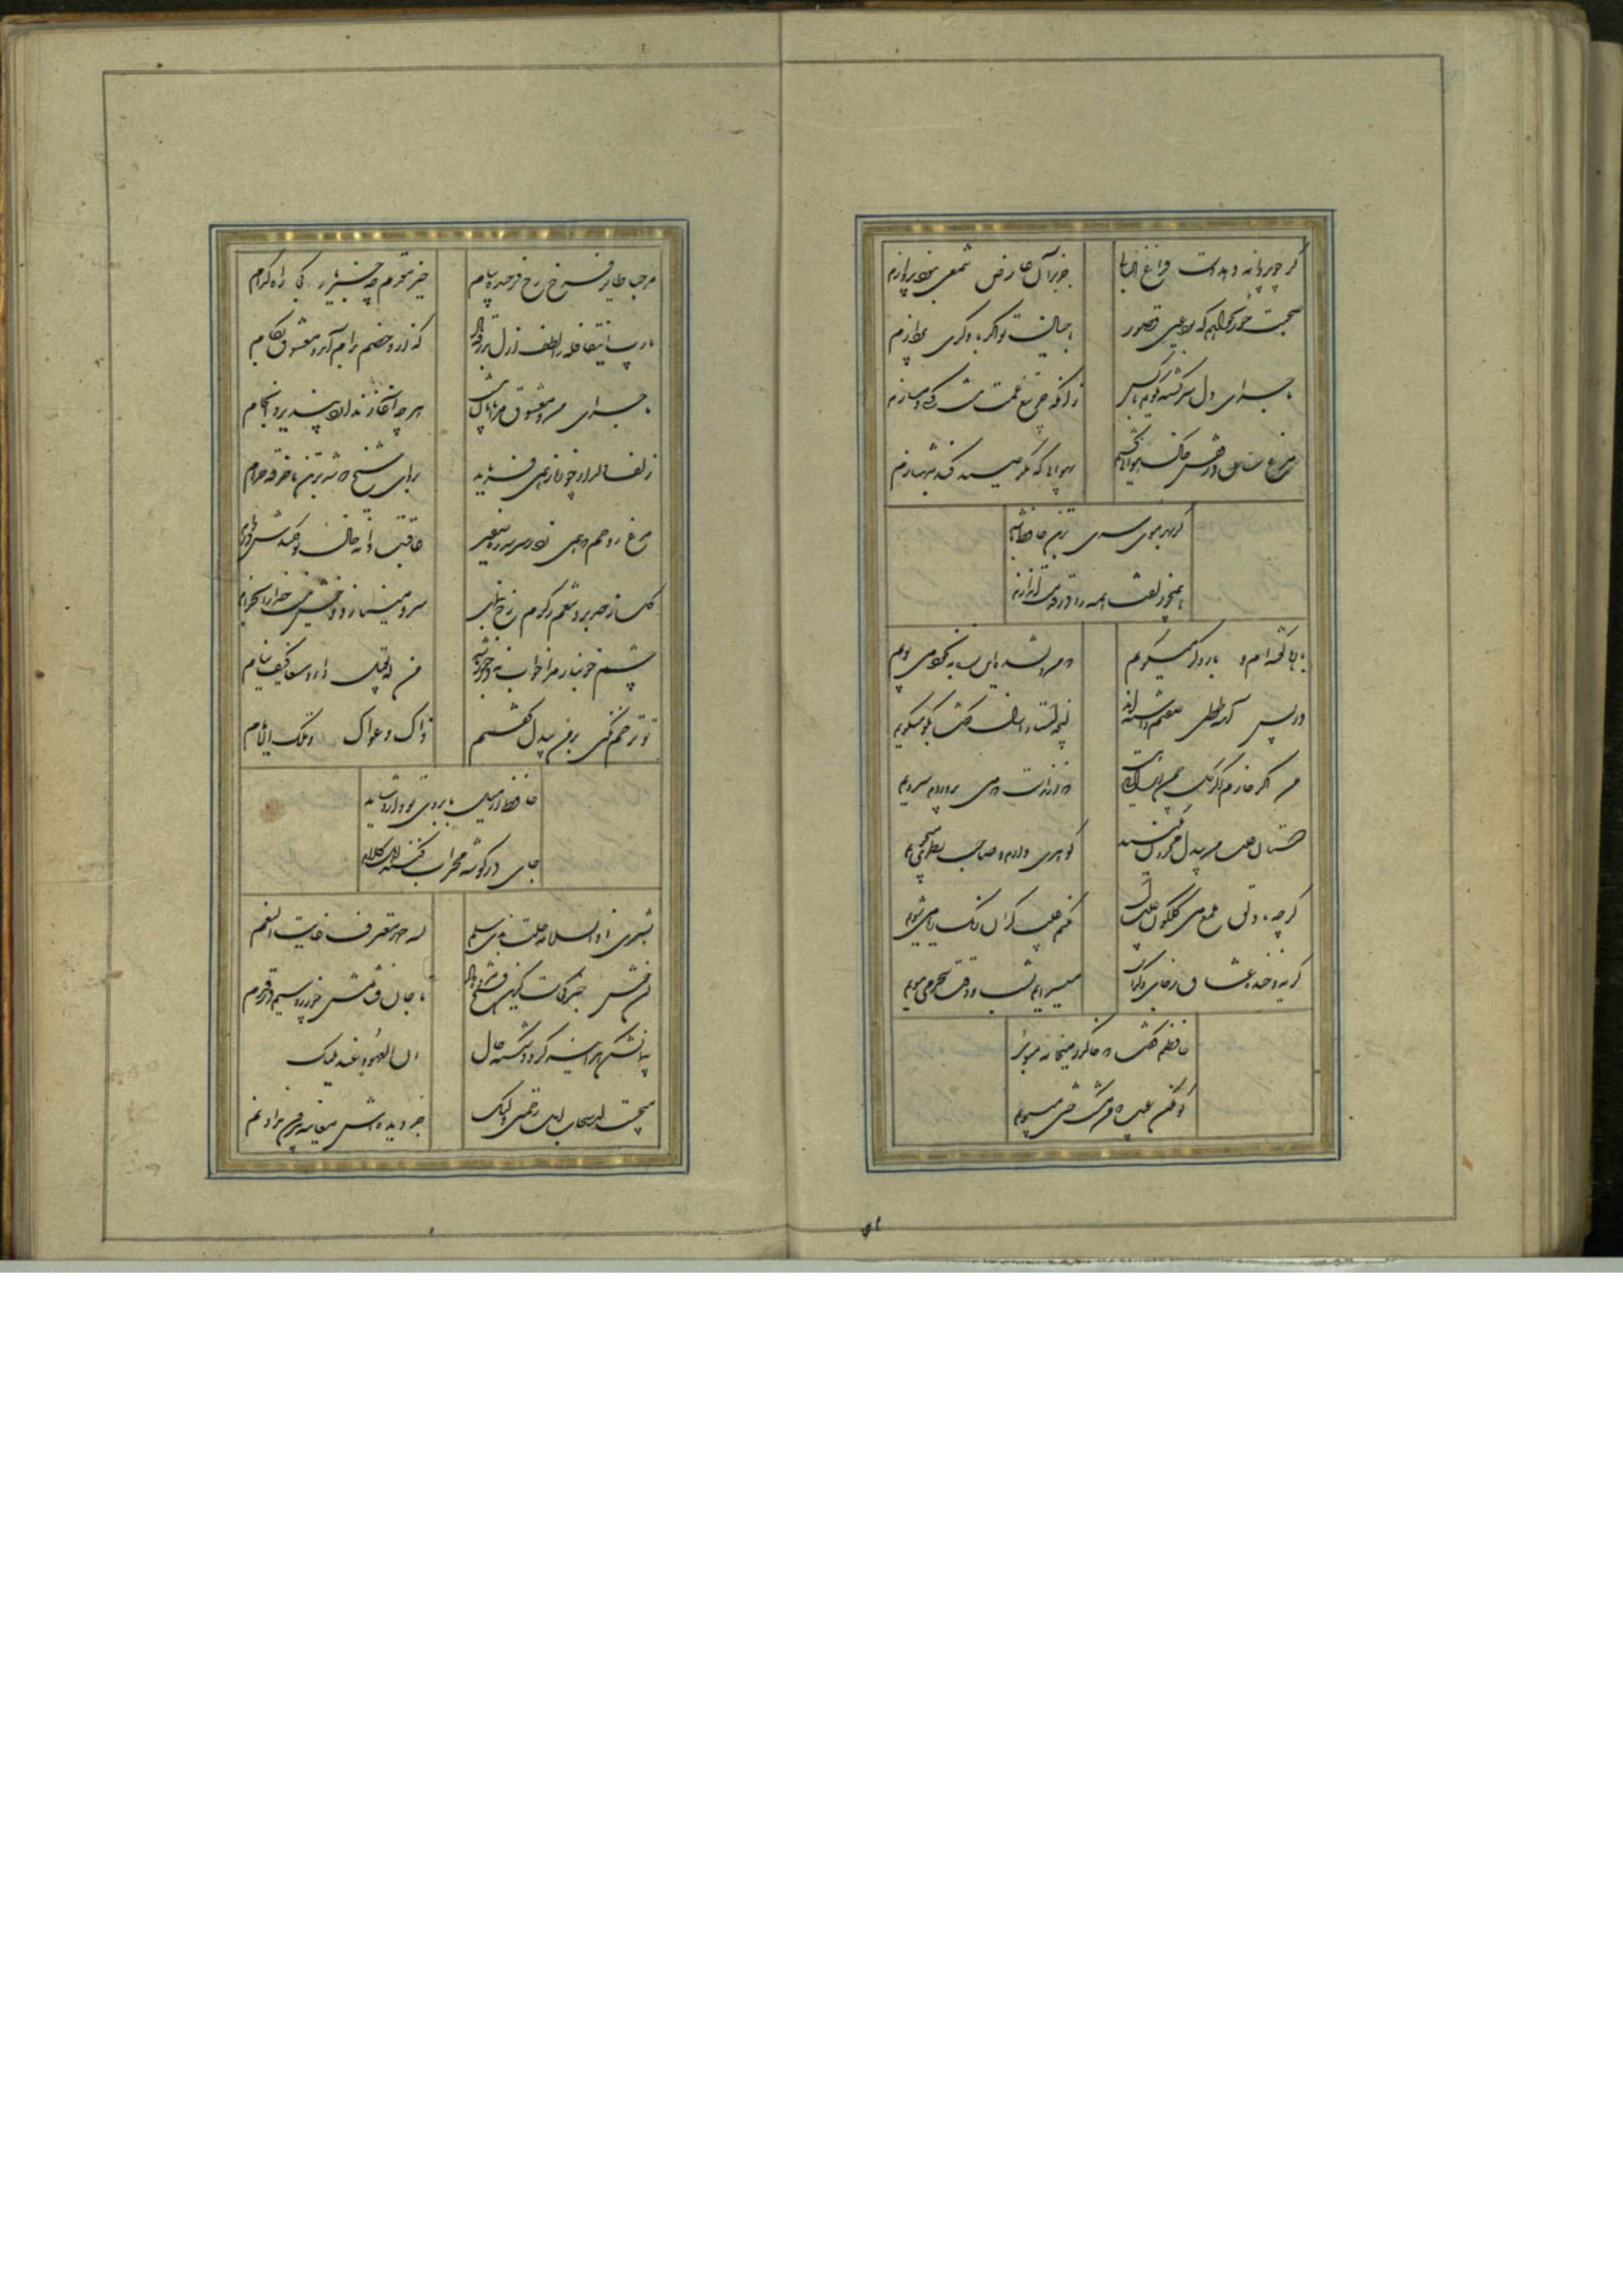 گر چو پروانه دهد دست فراغ البالی جز بدان عارض شمعی نبود پروازم
صحبت حور نخواهم که بود عین قصور با خیال تو اگر با دگری پردازم
ماجرای دل سرگشته نگویم با کس زانکه جز تیغ غمت نیست کسی دمسازم
مرغ سان از قفس خاک هوایی گشتم بهوایی که مگر صید کند شهبازم
گر بهر موی سری بر تن حافظ باشد
همچو زلفت همه را در قدمت اندازم
بارها گفته‌ام و بار دگر میگویم که من دلشده این ره نه بخود می پویم
در پس آینه طوطی صفتم داشته‌اند آنچه استاد ازل گفت بگو میگویم
من اگر خارم اگر گل چمن آرایی هست که از آن دست که می پروردم میرویم
دوستان عیب من بیدل حیران مکنید گوهری دارم و صاحب نظری میجویم
گرچه با دلق ملمع می گلگون عیبست مکنم عیب کزان رنگ ریا می شویم
گریه و خنده عشاق ز جای دگرست میسرایم بشب و وقت سحر می مویم
حافظم گفت که خاک در میخانه مبوی
گو مکن عیب که من مشک ختن میبویم
مرحبا طایر فرخ رخ فرخنده پیام خیر مقدم چه خبر یار کجا راه کدام
یا رب این قافله را لطف ازل بدرقه باد که ازو خصم بدام آید و معشوق بکام
ماجرای من و معشوق مرا پایان نیست هرچه آغاز ندارد نپذیرد انجام
زلف دلدار چو زنار همی فرماید برو ای شیخ که شد بر تن ما خرقه حرام
مرغ روحم که همی زد ز سر سدره صفیر عاقبت دانه خال تو فکندش در دام
گل ز حد برد تنعم ز کرم رخ بنمای سرو مینازد و خوش نیست خدا را بخرام
چشم خونبار مرا خواب نه درخور باشد من له یقتل داء دنف کیف ینام
تو ترحم نکنی بر من بیدل گفتم ذاک دعوای و تلک الایام
حافظ ار میل بابروی تو دارد شاید
جای در گوشه محراب کنند اهل کلام
بشری اذ السلامة حلت بذی سلم لله حمد معترف غایة النعم
آن خوش خبر کجاست کزین فتح مژده داد تا جان فشانمش چو زر و سیم در قدم
پیمان شکن هر آینه گردد شکسته حال ان العهود عند ملیک
میجست از سحاب امل رحمتی ولیک جز دیده‌اش معاینه بیرون نداد نم